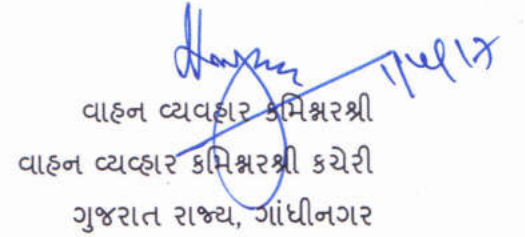 વાહન વ્યવહાર કમિશ્નરશ્રી
વાહન વ્યવ્હાર કમિશ્નરશ્રી કચેરી
ગુજરાત રાજ્ય, ગાંધીનગર